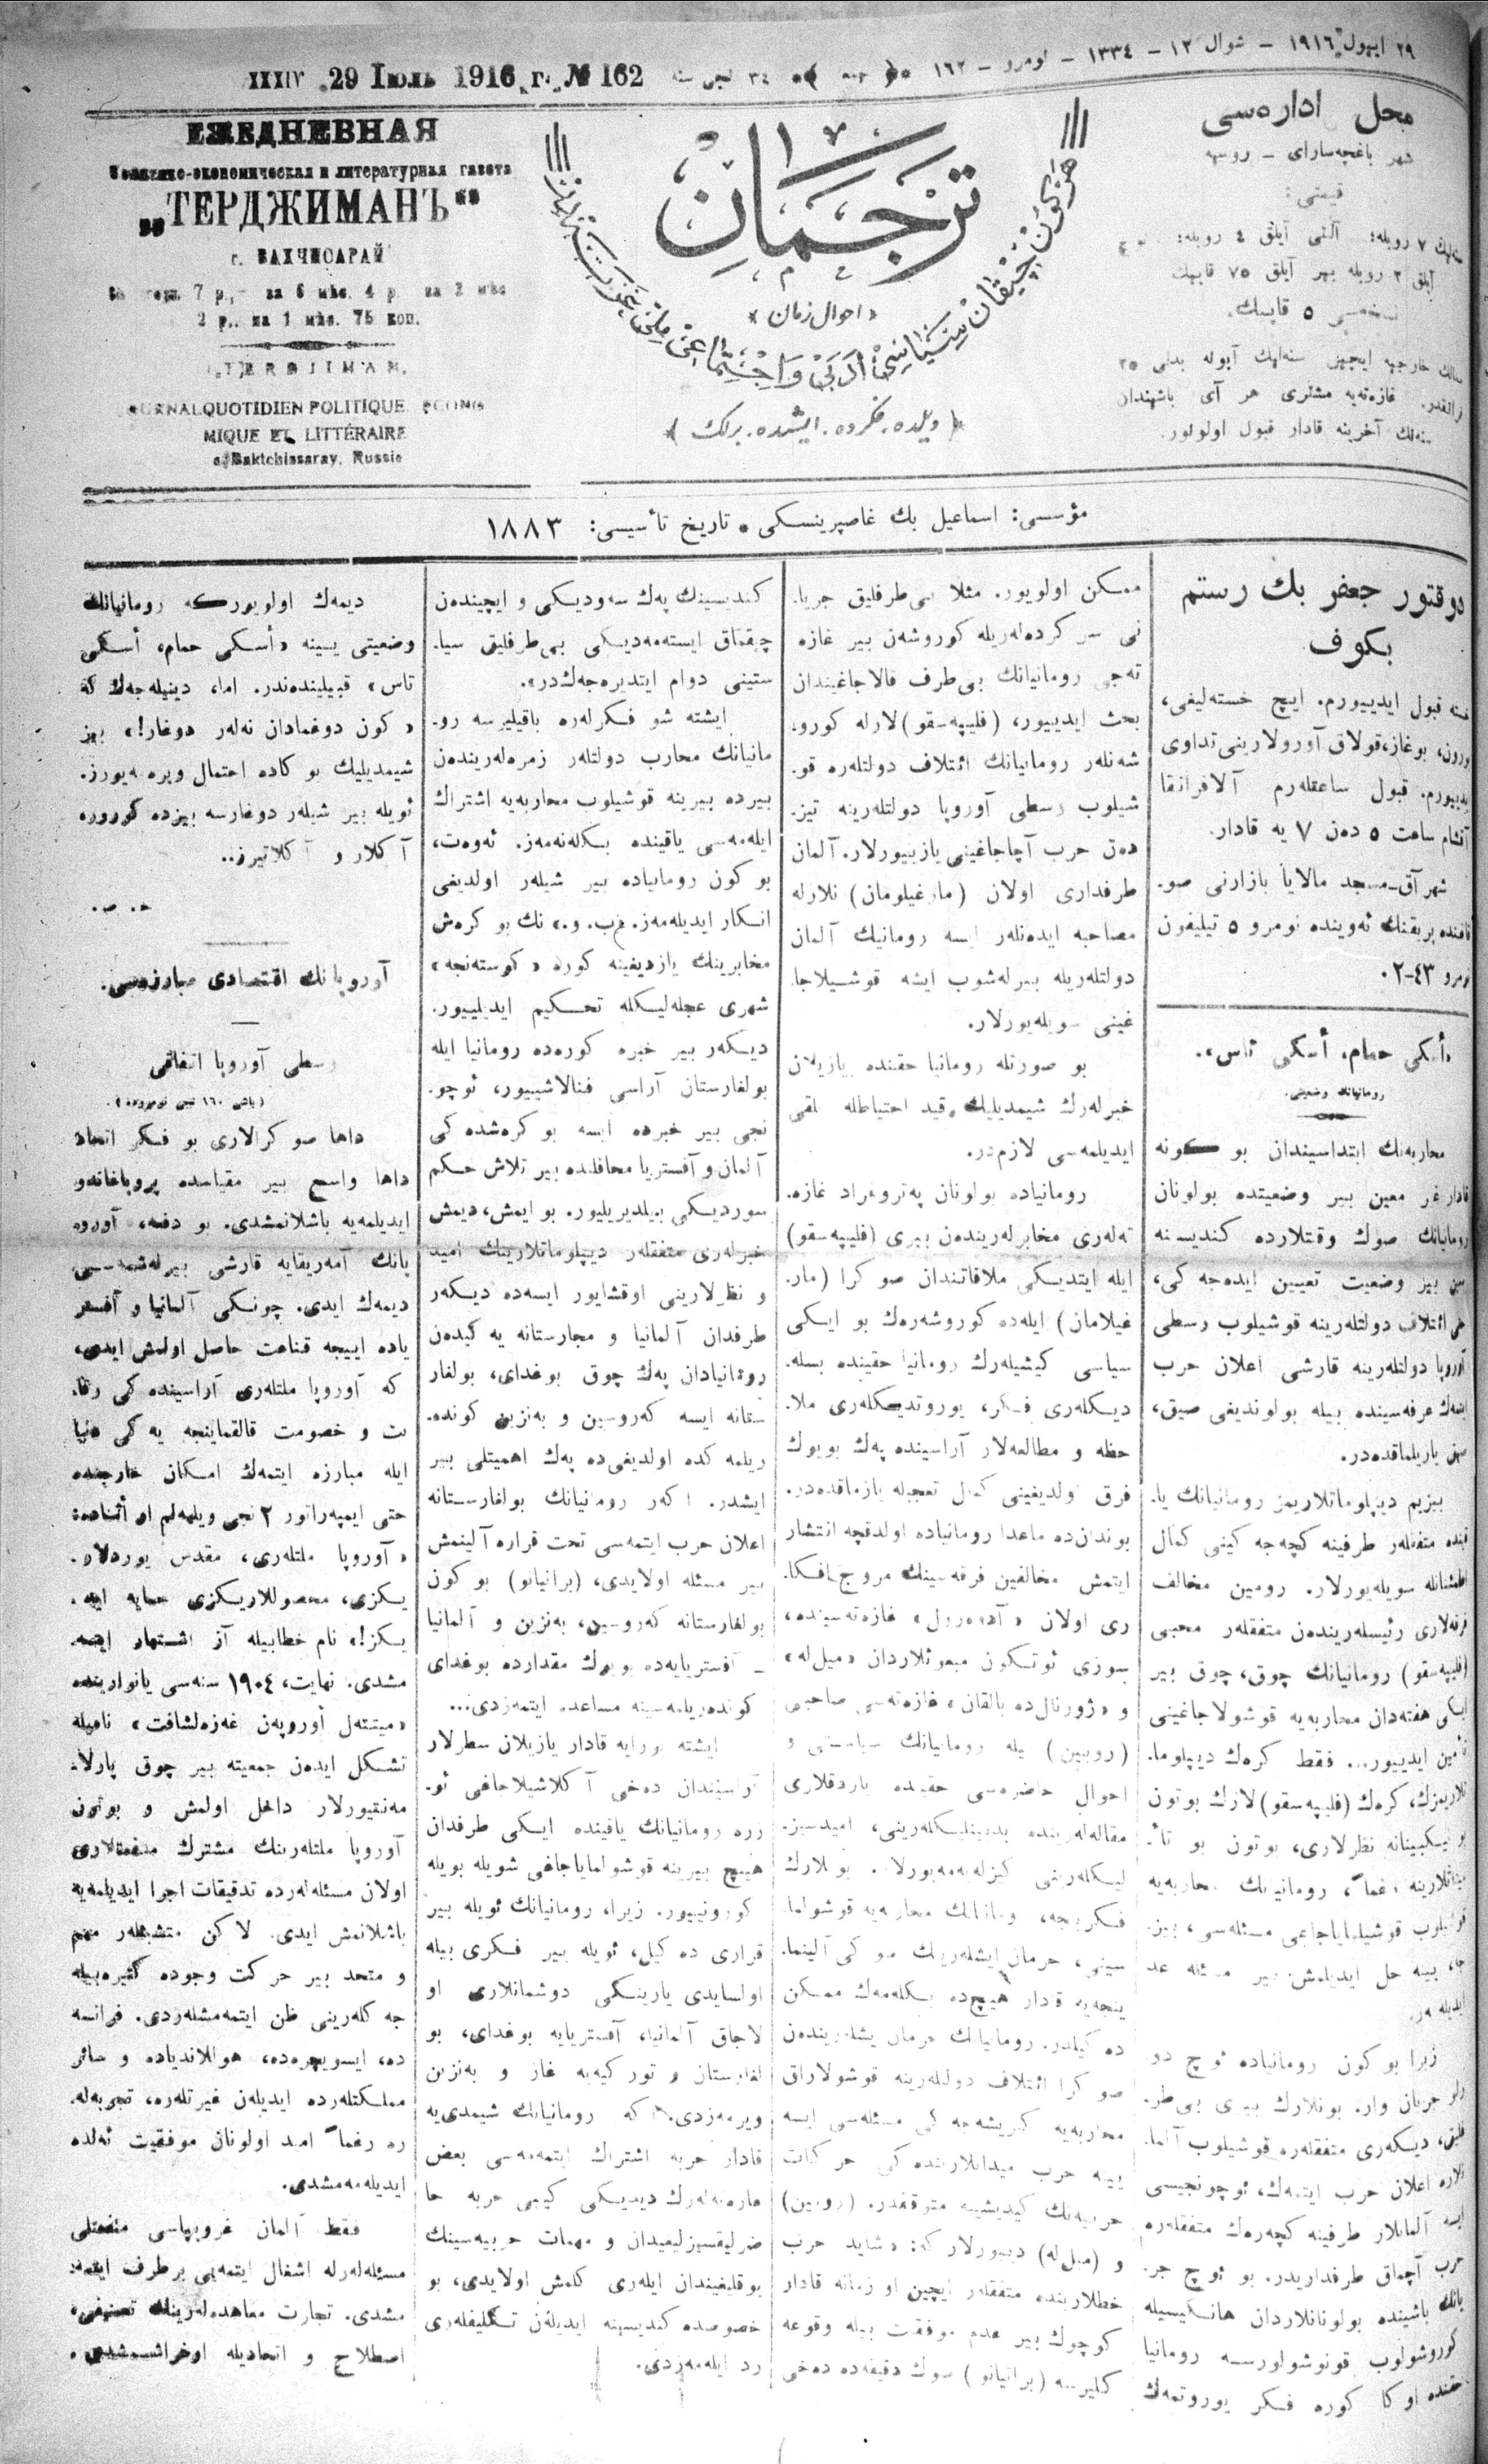 XXXIV 29 Іюль 1916 г. № 162
٢٩ ايیول ١٩١٦ – شوال ١٢ – ١٣٣٤ – نومرو – ١٦٢
٣٤ نجی سنه
ЕЖЕДНЕВНАЯ
Политико-экономическая и литературная газета
„ТЕРДЖИМАНЪ“
г. БАХЧИСАРАЙ
7 р., за 6 мѣс. 4 р. за 3 мѣс
2 р., за 1 мѣс. 75 коп.
TERDJIMAN.
JOURNAL QUOTIDIEN POLITIQUE, ECONO
MIQUE ET LITTÉRAIRE
a Baktchissaray, Russie
ترجمان
«احوال زمان»
هر كون چیقان سیاسی، ادبی و اجتماعی ملی غزته
﴿ دیلده، فكرده، ایشده، برلك ﴾
محل اداره‌سی
شهر باغچه‌سارای – روسیه
قیمتی:
٧ روبله؛ آلتی آیلق ٤ روبله؛
آیلق ٢ روبله بیر آیلق ٧٥ قاپیك
نسخه‌سی ٥ قاپیك.
خارجیه ایچین سنه‌لیك آبونه بدلی ٢٥
فرانقدر. غازه‌ته‌یه مشتری هر آی باشیندان
سنه‌نك آخرینه قادار قبول اولونور.
مؤسسی: اسماعیل بك غاصپرینسكی • تاریخ تأسیسی: ١٨٨٣
دوقتور جعفر بك رستم
بكوف
خسته قبول ایدییورم. ایچ خسته‌لیغی،
بورون، بوغاز، قولاق آورولارینی تداوی
ایدییورم. قبول ساعتله‌رم آلافرانقا
آقشام ساعت ٥ ده‌ن ٧ یه قادار.
شهر آق‌-مسجد مالایا بازارنی صو.
ئه‌وینده نومرو ٥ تیلیفون
نومرو ٤٣-٢٠
«أسكی حمام، أسكی تاس».
رومانیانك وضعیتی.
محاربه‌نك ابتداسیندان بو كونه
قادار غیر معین بیر وضعیتده بولونان
رومانیانك صوك وقتلارده كندیسنه
بیر وضعیت تعیین ایده‌جه كی،
ائتلاف دولتله‌رینه قوشیلوب وسطی
آوروپا دولتله‌رینه قارشی اعلان حرب
ایتمه‌ك عرفه‌سینده بیله بولوندیغی صیق،
صیق یازیلماقده‌در.
بیزیم دیپلوماتلاریمز رومانیانك یا.
قینده متفقله‌ر طرفینه كچه‌جه كینی كمال
اطمئنانله سویله‌یورلار. رومین مخالف
فرقه‌لاری رئیسله‌ریندن متفقله‌ر محبی
(فلیپه‌سقو) رومانیانك چوق، چوق بیر
ایكی هفته‌دان محاربه‌یه قوشولاجاغینی
تأمین ایدییور... فقط كره‌ك دیپلوما.
تلاریمزك، كره‌ك (فلیپه‌سقو) لارك بوتون
نیكبینانه نظرلاری، بوتون بو تأ.
میناتلارینه رغماً، رومانیانك محاربه‌یه
قوشیلوب قوشیلمایاجاغی مسئله‌سی، بیز.
جه، یینه حل ایدیلمه‌مش بیر مسئله عد
ایدیله‌ر.
زیرا بو كون رومانیاده ئوچ دو.
رلو جریان وار. بونلارك بیری بی‌طر.
فلیق، دیكه‌ری متفقله‌ره قوشیلوب آلما.
نلاره اعلان حرب ایتمه‌ك، ئوچونجیسی
ایسه آلمانلار طرفینه كچه‌ره‌ك متفقله‌ره
حرب آچماق طرفداریدر. بو ئوچ جر.
یانك باشینده بولونانلاردان هانكیسیله
كوروشولوب قونوشولورسه رومانیا
حقنده اوكا كوره فكر یوروتمه‌ك
ممكن اولویور. مثلا بی‌طرفلیق جریا.
نی سر كرده‌له‌ریله كوروشه‌ن بیر غازه
ته‌جی رومانیانك بی‌طرف قالاجاغیندان
بحث ایدییور، (فلیپه‌سقو) لارله كورو.
شه‌نله‌ر رومانیانك ائتلاف دولتله‌ره قو.
شیلوب وسطی آوروپا دولتله‌رینه تیز.
ده‌ن حرب آچاجاغینی یازییورلار. آلمان
طرفداری اولان (مارغیلومان) نلارله
مصاحبه ایده‌نله‌ر ایسه رومانیك آلمان
دولتله‌ریله بیرله‌شوب ایشه قوشیلاجا.
غینی سویله‌یورلار.
بو صورتله رومانیا حقنده یازیلان
خبرله‌رك شیمدیلیك قید احتیاطله تلقی
ایدیلمه‌سی لازم‌در.
رومانیاده بولونان په‌تروغراد غازه.
ته‌له‌ری مخابرله‌ریندن بیری (فلیپه‌سقو)
ایله ایتدیكی ملاقاتندان صوكرا (مار.
غیلامان) ایله‌ده كوروشه‌رك بو ایكی
سیاسی كیشیله‌رك رومانیا حقینده بسله.
دیكله‌ری فكر، یوروتدیكله‌ری ملا.
حظه و مطالعه‌لار آراسینده په‌ك بویوك
فرق اولدیغینی كمال تعجبله یازماقده‌در.
بوندان‌ده ماعدا رومانیاده اولدقچه انتشار
ایتمش مخالفین فرقه‌سینك مروج افكا.
ری اولان «آده‌ورول» غازه‌ته‌سینده،
سوزی ئوتكون مبعوثلاردان «میل‌له»
و «ژورنال‌ده بالقان» غازه‌ته‌سی صاحبی
(روبین) یله رومانیانك سیاستنی و
احوال حاضره‌سی حقینده یازدقلاری
مقاله‌له‌رینده بدبینلیكله‌رینی، امیدسیز.
لیكله‌رینی كیزله‌یه‌مه‌یورلار. بونلارك
فكرینجه، رومانیانك محاربه‌یه قوشولما.
سینی، خرمان ایشله‌رینك صوكی آلینما.
ینجه‌یه قادار هیچ‌ده بكله‌مه‌ك ممكن
ده‌كیلدر. رومانیانك خرمان ایشله‌ریندن
صوكرا ائتلاف دولتله‌رینه قوشولاراق
محاربه‌یه كیریشه‌جه كی مسئله‌سی ایسه
یینه حرب میدانلارینده كی حركات
حربیه‌نك كیدیشینه متوقفدر. (روبین)
و (میل‌له) دییورلار كه: «شاید حرب
خطلارینده متفقله‌ر ایچین او زمانه قادار
كوچوك بیر عدم موفقیت بیله وقوعه
كلیرسه (برانیانو) صوك دقیقه‌ده ده‌خی
كندیسینك په‌ك سه‌ودیكی و ایچینده‌ن
چیقماق ایسته‌مه‌دیكی بی‌طرفلیق سیا.
ستینی دوام ایتدیره‌جه‌ك‌در».
ایشته شو فكرله‌ره باقیلیرسه رو.
مانیانك محارب دولتله‌ر زمره‌له‌ریندن
بیرده بیرینه قوشیلوب محاربه‌یه اشتراك
ایله‌مه‌سی یاقینده بكله‌نه‌مه‌ز. ئه‌وه‌ت،
بو كون رومانیاده بیر شیله‌ر اولدیغی
انكار ایدیله‌مه‌ز. «ب. و.» نك بو كره‌ش
مخابرینك یازدیغینه كوره «كوسته‌نجه»
شهری عجله‌لیكله تحكیم ایدیلییور.
دیكه‌ر بیر خبره كوره‌ده رومانیا ایله
بولغارستان آراسی فنالاشییور، ئوچو.
نجی بیر خبرده ایسه بو كره‌شده كی
آلمان و آفستریا محافلنده بیر تلاش حكم
سوردیكی بیلدیریلیور. بو ایمش، دیمش
خبرله‌ری متفقله‌ر دیپلوماتلارینك امید
و نظرلارینی اوقشایور ایسه‌ده دیكه‌ر
طرفدان آلمانیا و مجارستانه یه كیده‌ن
رومانیادان په‌ك چوق بوغدای، بولغار
ستانه ایسه كه‌روسین و به‌نزین كونده.
ریلمه كده اولدیغی‌ده په‌ك اهمیتلی بیر
ایشدر. اكه‌ر رومانیانك بولغارستانه
اعلان حرب ایتمه‌سی تحت قراره آلینمش
بیر مسئله اولایدی، (برانیانو) بو كون
بولغارستانه كه‌روسین، به‌نزین و آلمانیا
– آفستریایه‌ده بویوك مقدارده بوغدای
كونده‌ریلمه‌سینه مساعده ایتمه‌زدی...
ایشته بورایه قادار یازیلان سطرلار
آراسیندان ده‌خی آكلاشیلاجاغی ئو.
زره رومانیانك یاقینده ایكی طرفدان
هیچ بیرینه قوشولمایاجاغی شویله بویله
كورونییور. زیرا، رومانیانك ئویله بیر
قراری ده كیل، ئویله بیر فكری بیله
اولسایدی یارینكی دوشمانلاری او
لاجاق آلمانیا، آفستریایه بوغدای، بو
لغارستان و توركیه‌یه غاز و به‌نزین
ویرمه‌زدی. اكه رومانیانك شیمدی‌یه
قادار حربه اشتراك ایتمه‌مه‌سی بعض
غازه‌ته‌له‌رك دیدیكی كیبی حربه حا
ضرلیقسیزلیغیدان و مهمات حربیه‌سینك
یوقلیغیندان ایله‌ری كلمش اولایدی، بو
خصوصده كندیسینه ایدیله‌ن تكلیفله‌ری
رد ایله‌مه‌زدی.
دیمه‌ك اولویوركه رومانیانك
وضعیتی یینه «أسكی حمام، أسكی
تاس» قبیلیندندر. اما، دینیله‌جه‌ك كه
«كون دوغمادان نه‌له‌ر دوغار!» بیز
شیمدیلیك بو كاده احتمال ویره‌مه‌یورز.
ئویله بیر شیله‌ر دوغارسه بیزده كورورە
آكلار و آكلاتیرز..
ح. ص.
آوروپانك اقتصادی مبارزه‌سی.
وسطی آوروپا اتفاقی
(باشی ١٦٠ نجی نومروده).
داها صوكرالاری بو فكر اتحاد
داها واسع بیر مقیاسده پروپاغاندو
ایدیلمه‌یه باشلانمشدی. بو دفعه، آورو.
پانك آمه‌ریقایه قارشی بیرله‌شمه‌سی
دیمه‌ك ایدی. چونكی آلمانیا و آفستر
یاده اییجه قناعت حاصل اولمش ایدی،
كه آوروپا ملتله‌ری آراسینده كی رقا.
بت و خصومت قالقماینجه یه‌كی دنیا
ایله مبارزه ایتمه‌ك امكان خارجنده
حتی ایمپه‌راتور ٢ نجی ویلهه‌لم او أثناده:
«آوروپا ملتله‌ری، مقدس یوردلار.
یكزی، محصوللاریكزی حمایه ایتـ.
یكز!» نام خطابیله آز اشتهار ایتمه.
مشدی. نهایت، ١٩٠٤ سنه‌سی یانوارینده
«میتته‌ل أوروپه‌ن غه‌زه‌لشافت» نامیله
تشكل ایده‌ن جمعیته بیر چوق پارلا.
مه‌نتیورلار داخل اولمش و بوتون
آوروپا ملتله‌رینك مشترك منفعتلاری
اولان مسئله‌له‌رده تدقیقات اجرا ایدیلمه‌یه
باشلانمش ایدی. لاكن متشبثله‌ر مهم
و متحد بیر حركت وجوده كتیره‌بیله
جه كله‌رینی ظن ایتمه‌مشله‌ردی. فرانسه
ده، ایسویچره‌ده، هوللاندیاده و سائر
مملكتله‌رده ایدیله‌ن غیرتله‌ره، تجربه‌له.
ره رغماً امید اولونان موفقیت ئه‌لده
ایدیله‌مه‌مشدی.
فقط آلمان غروپپاسی منفعتلی
مسئله‌له‌رله اشغال ایتمه‌یی بر طرف ایتمه.
مشدی. تجارت معاهده‌له‌رینك تصنیفی،
اصطلاح و اتحادیله اوغراشمشدی.